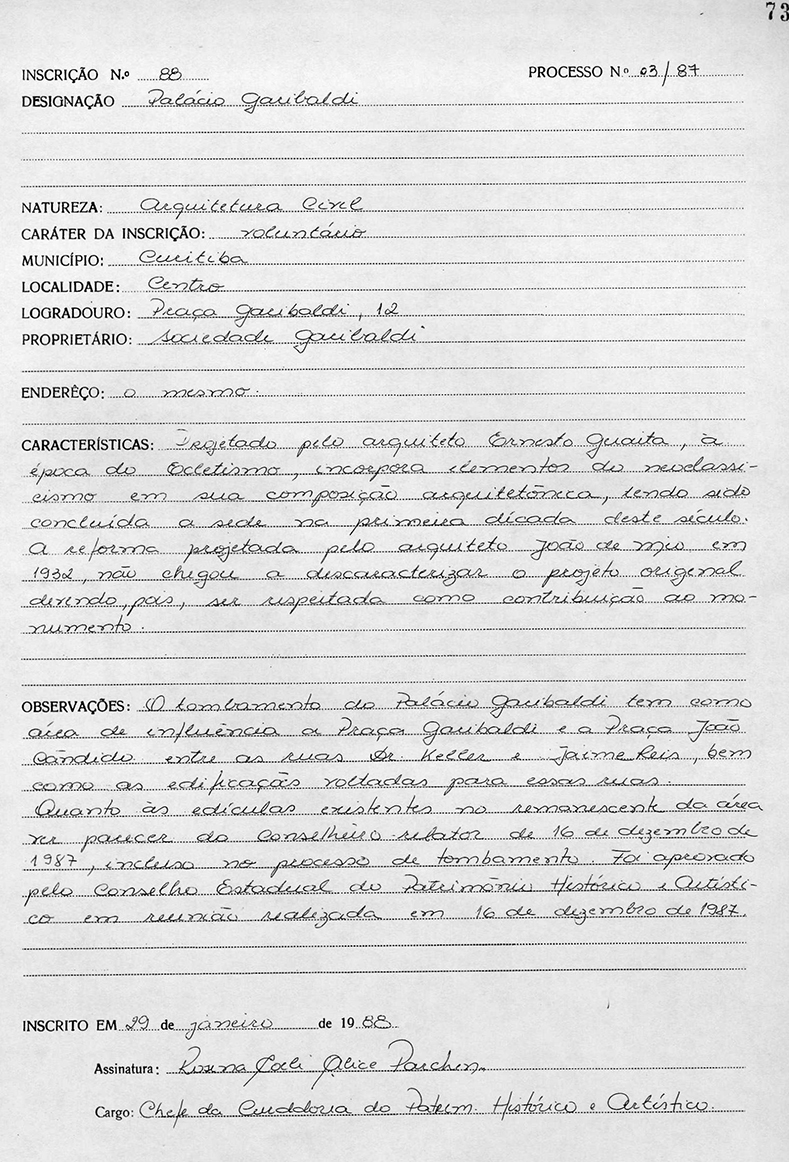 73
INSCRIÇÃO N.º 88 PROCESSO Nº 03/87
DESIGNAÇÃO Palácio Garibaldi
NATUREZA: Arquitetura Civil
CARÁTER DA INSCRIÇÃO: voluntário
MUNICÍPIO: Curitiba
LOCALIDADE: Centro
LOGRADOURO: Praça Garibaldi, 12
PROPRIETÁRIO: Sociedade Garibaldi
ENDERÊÇO: o mesmo.
CARACTERÍSTICAS: Projetado pelo arquiteto Ernesto Guaita, à
época do Ecletismo, incorpora elementos do neoclassi-
cismo em sua composição arquitetônica, tendo sido
concluída a sede na primeira década deste século.
A reforma projetada pelo arquiteto João de Mio em
1932, não chegou a descaracterizar o projeto original
devendo, pois, ser respeitada como contribuição ao mo-
numento.
OBSERVAÇÕES: O tombamento do Palácio Garibaldi tem como
área de influência a Praça Garibaldi e a Praça João
Cândido entre as ruas Dr. Keller e Jaime Reis, bem
como as edificações voltadas para essas ruas.
Quanto às edículas existentes no remanescente da área
ver parecer do Conselheiro relator de 16 de dezembro de
1987, incluso no processo de tombamento. Foi aprovado
pelo Conselho Estadual do Patrimônio Histórico e Artísti-
co em reunião realizada em 16 de dezembro de 1987.
INSCRITO EM 29 de janeiro de 1988
Assinatura: Rosina Alice Parchen
Cargo: Chefe da Curadoria do Patrim. Histórico e Artístico.